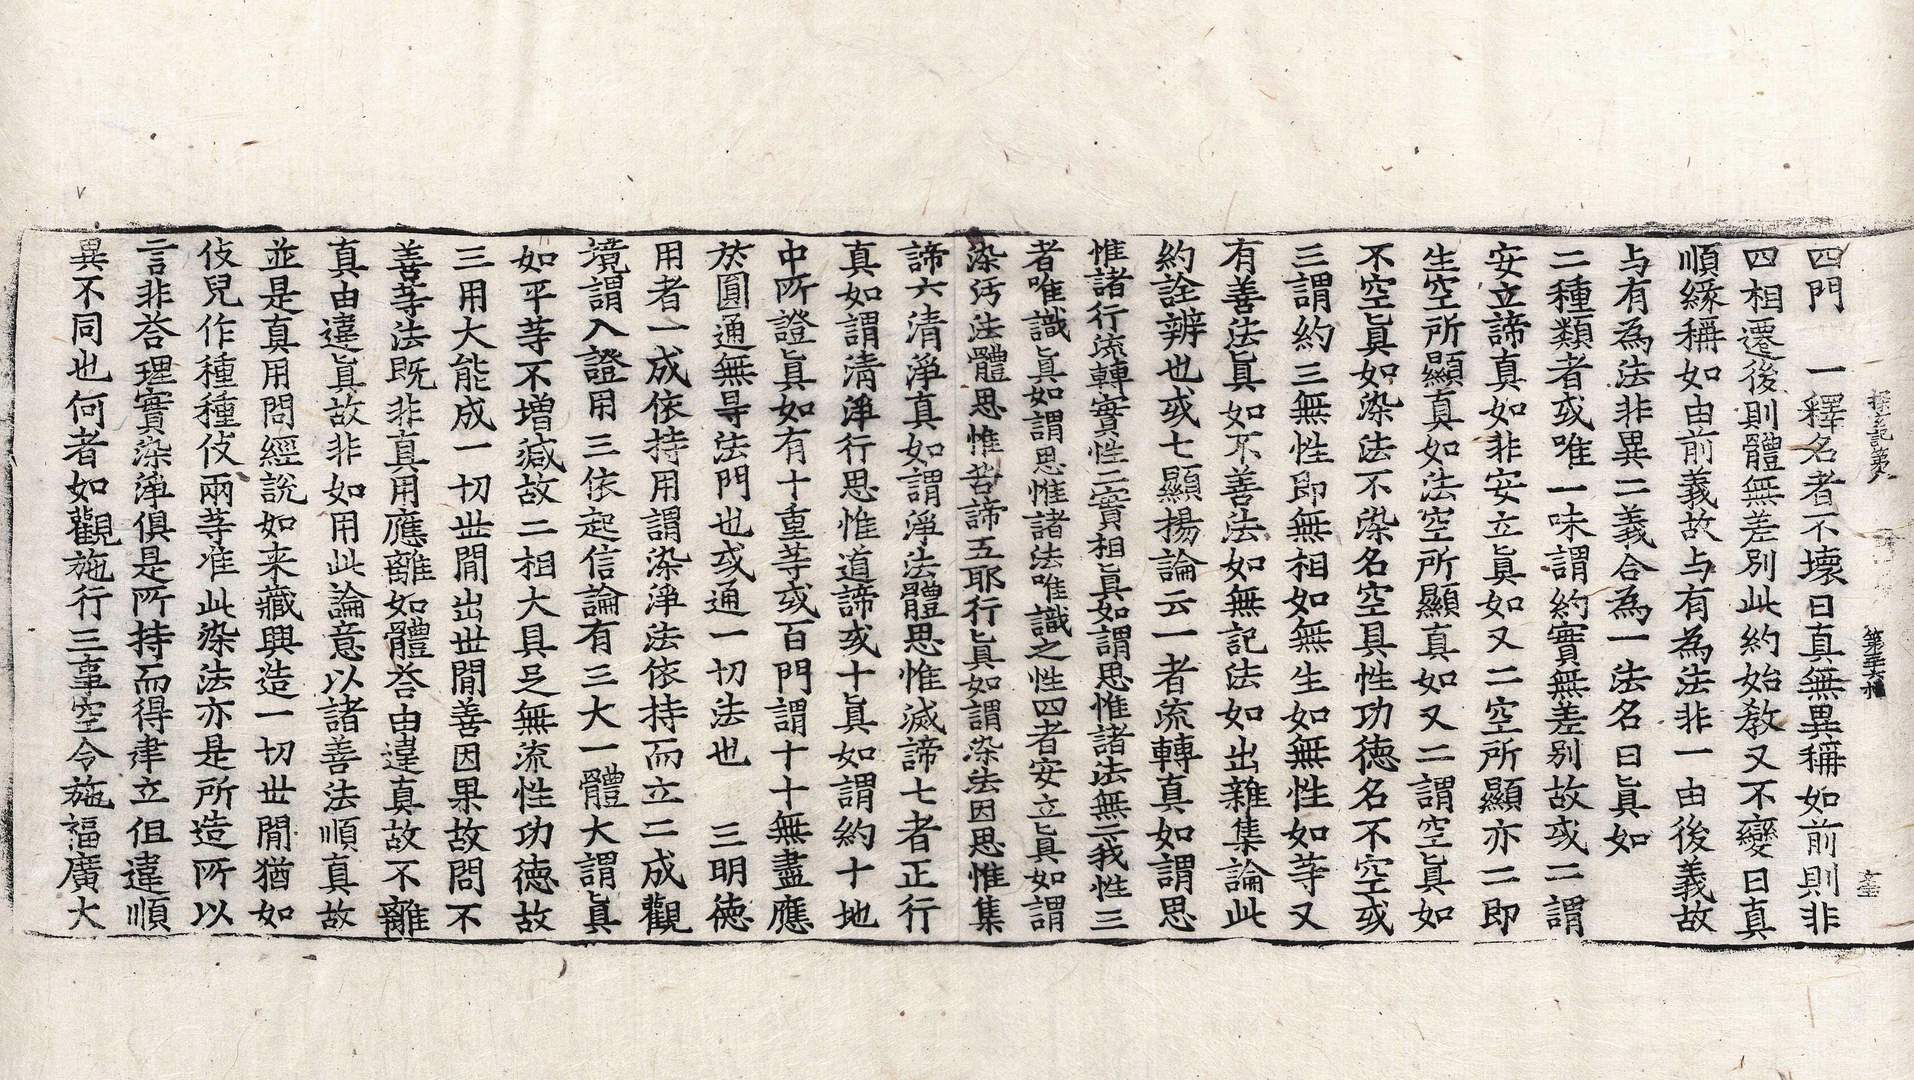 探玄記第八 第三十六丈 文圭
四門 一釋名者不壞曰真無異稱如前則非
四相遷後則體無差別此約始教又不變曰真
順緣稱如由前義故与有為法非一由後義故
与有為法非異二義合為一法名曰眞如
二種類者或唯一味謂約實無差別故或二謂
安立諦真如非安立眞如又二空所顯亦二即
生空所顯真如法空所顯真如又二謂空眞如
不空眞如染法不染名空具性功德名不空或
三謂約三無性即無相如無生如無性如等又
有善法眞如不善法如無記法如出雜集論此
約詮辨也或七顯揚論云一者流轉真如謂思
惟諸行流轉實性二實相眞如謂思惟諸法無二我性三
者唯識眞如謂思惟諸法唯識之性四者安立眞如謂
染汚法體思惟苦諦五耶行眞如謂染法因思惟集
諦六清淨真如謂淨法體思惟滅諦七者正行
真如謂清淨行思惟道諦或十眞如謂約十地
中所證眞如有十重等或百門謂十十無盡應
於圓通無㝵法門也或通一切法也 三明德
用者一成依持用謂染淨法依持而立二成觀
境謂入證用三依起信論有三大一體大謂眞
如平等不增減故二相大具足無流性功德故
三用大能成一切世閒出世閒善因果故問不
善等法既非真用應離如體荅由違真故不離
真由違眞故非如用此論意以諸善法順真故
並是真用問經說如来藏興造一切世閒猶如
伎兒作種種伎兩等准此染法亦是所造所以
言非荅理實染淨俱是所持而得建立但違順
異不同也何者如觀施行三事空令施福廣大